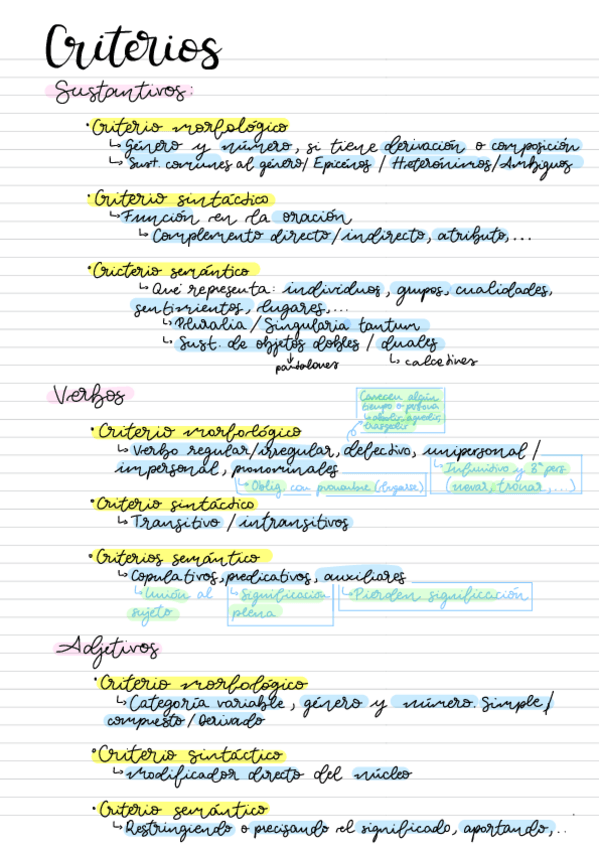 Criterios
Sustantivos:
· Criterio morfológico
↳ Género y número, si tiene derivación o composición
↳ Sust. comunes al género/ Epicenos / Heterónimos/Ambiguos
· Criterio sintáctico
↳ Función en la oración
↳ Complemento directo/indirecto, atributo,...
· Cricterio semántico
↳ Que representa: individuos, grupos, cualidades,
sentimientos, lugares,...
↳ Pluralia / Singularia tantum
↳ Sust. de objetos dobles / duales
↓ pantalones ↳ calcetines
Verbos
Carecen algún
tiempo o persona
↳ abolir,
· Criterio morfológico
↳ Verbo regular/irregular, defectivo, unipersonal /
impersonal, pronominales
↳ Infinitivo y 3ª pers
(nevar, tronar,....)
↳ Oblig. con pronombre (fugarse)
· Criterio sintáctico
↳ Transitivo / intransitivos
· Criterios semántico
↳ Copulativos, predicativos, auxiliares
↳ Unión al sujeto
↳ Significación plena
↳ Pierden significación
Adjetivos
· Criterio morfológico
↳ Categoría variable, género y número. Simple/
compuesto / Derivado
· Criterio sintáctico
↳ Modificador directo del núcleo
· Criterio semántico
↳ Restringiendo o precisando el significado, aportando,..